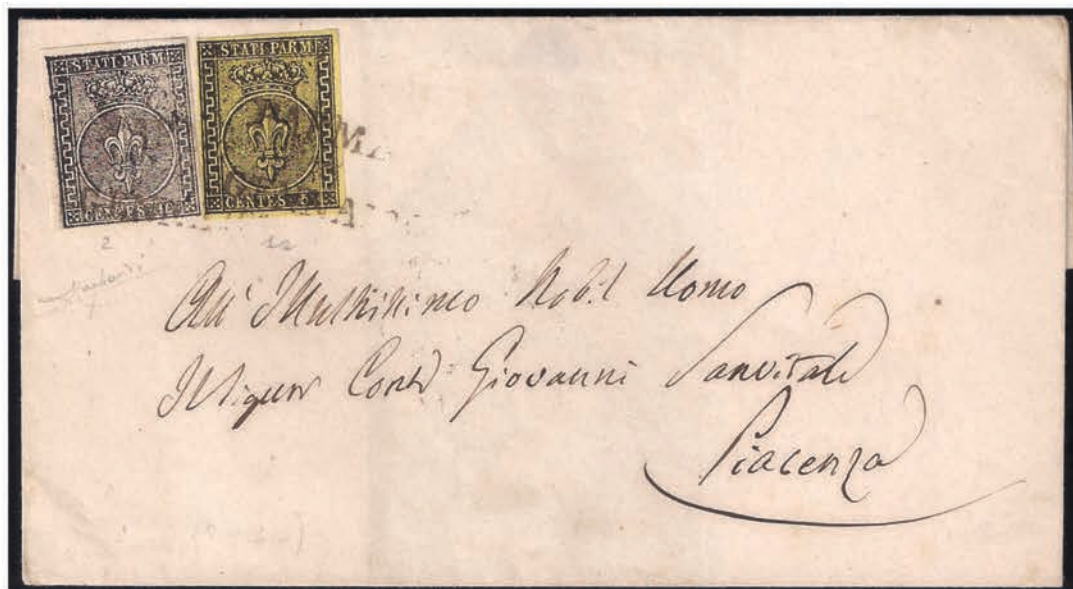 STATI PARM
STATI PARM
CENTES 10
CENTES 5
2
All' Illustrissimo Nobil Uomo
Il Signor Conte Giovanni Sanvitale
Piacenza